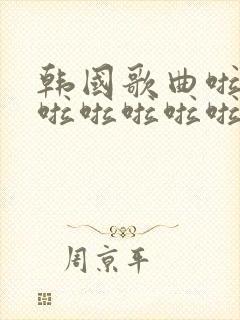 韩国歌曲啦
啦啦啦啦啦
周京平